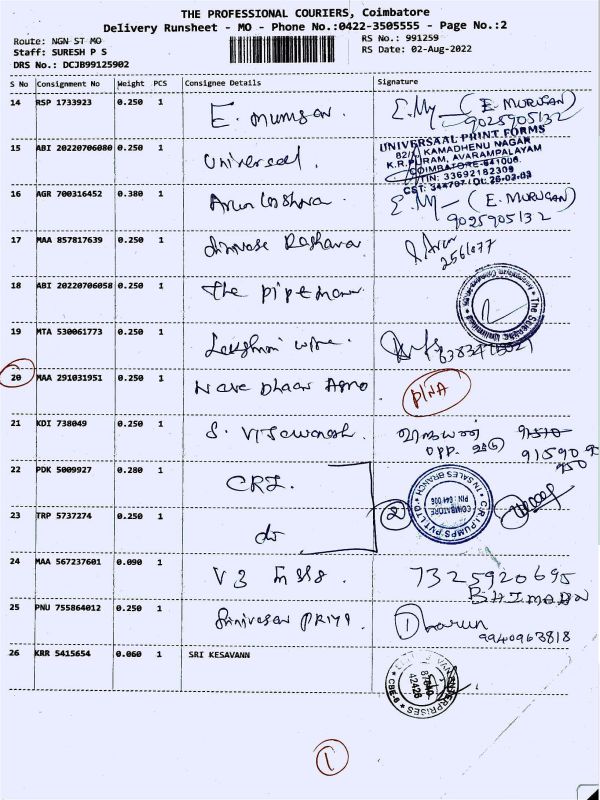 THE PROFESSIONAL COURIERS, Coimbatore
Delivery Runsheet - MO - Phone No.:0422-3505555 - Page No.:2
Route: NGN ST MO
RS No.: 991259
Staff: SURESH P S
RS Date: 02-Aug-2022
DRS No.: DCJB99125902
S No Consignment No Weight PCS Consignee Details Signature
14 RSP 1733923 0.250 1 E. (E. MURUGAN)
9025905132
15 ABI 20220706080 0.250 1 Universal.
UNIVERSAAL PRINT FORMS
82/ KAMADHENU NAGAR
K.R.PURAM, AVARAMPALAYAM
COIMBATORE-641006.
TIN: 33692182309
16 AGR 700316452 0.380 1 (E. MURUGAN)
9025905132
17 MAA 857817639 0.250 1
2561077
18 ABI 20220706058 0.250 1 The
19 MTA 530061773 0.250 1
20 MAA 291031951 0.250 1 Nava Dhaan Agro
21 KDI 738049 0.250 1 S.
opp.
91590
22 PDK 5009927 0.280 1 CRI.
C.R.I. PUMPS PVT LTD
TN SALES BRANCH
COIMBATORE
PIN : 641 006
2
23 TRP 5737274 0.250 1 do
24 MAA 567237601 0.090 1 V3 7325920695
25 PNU 755864012 0.250 1 Srinivasan PRIYA Dharun
9940963818
26 KRR 5415654 0.060 1 SRI KESAVANN
1